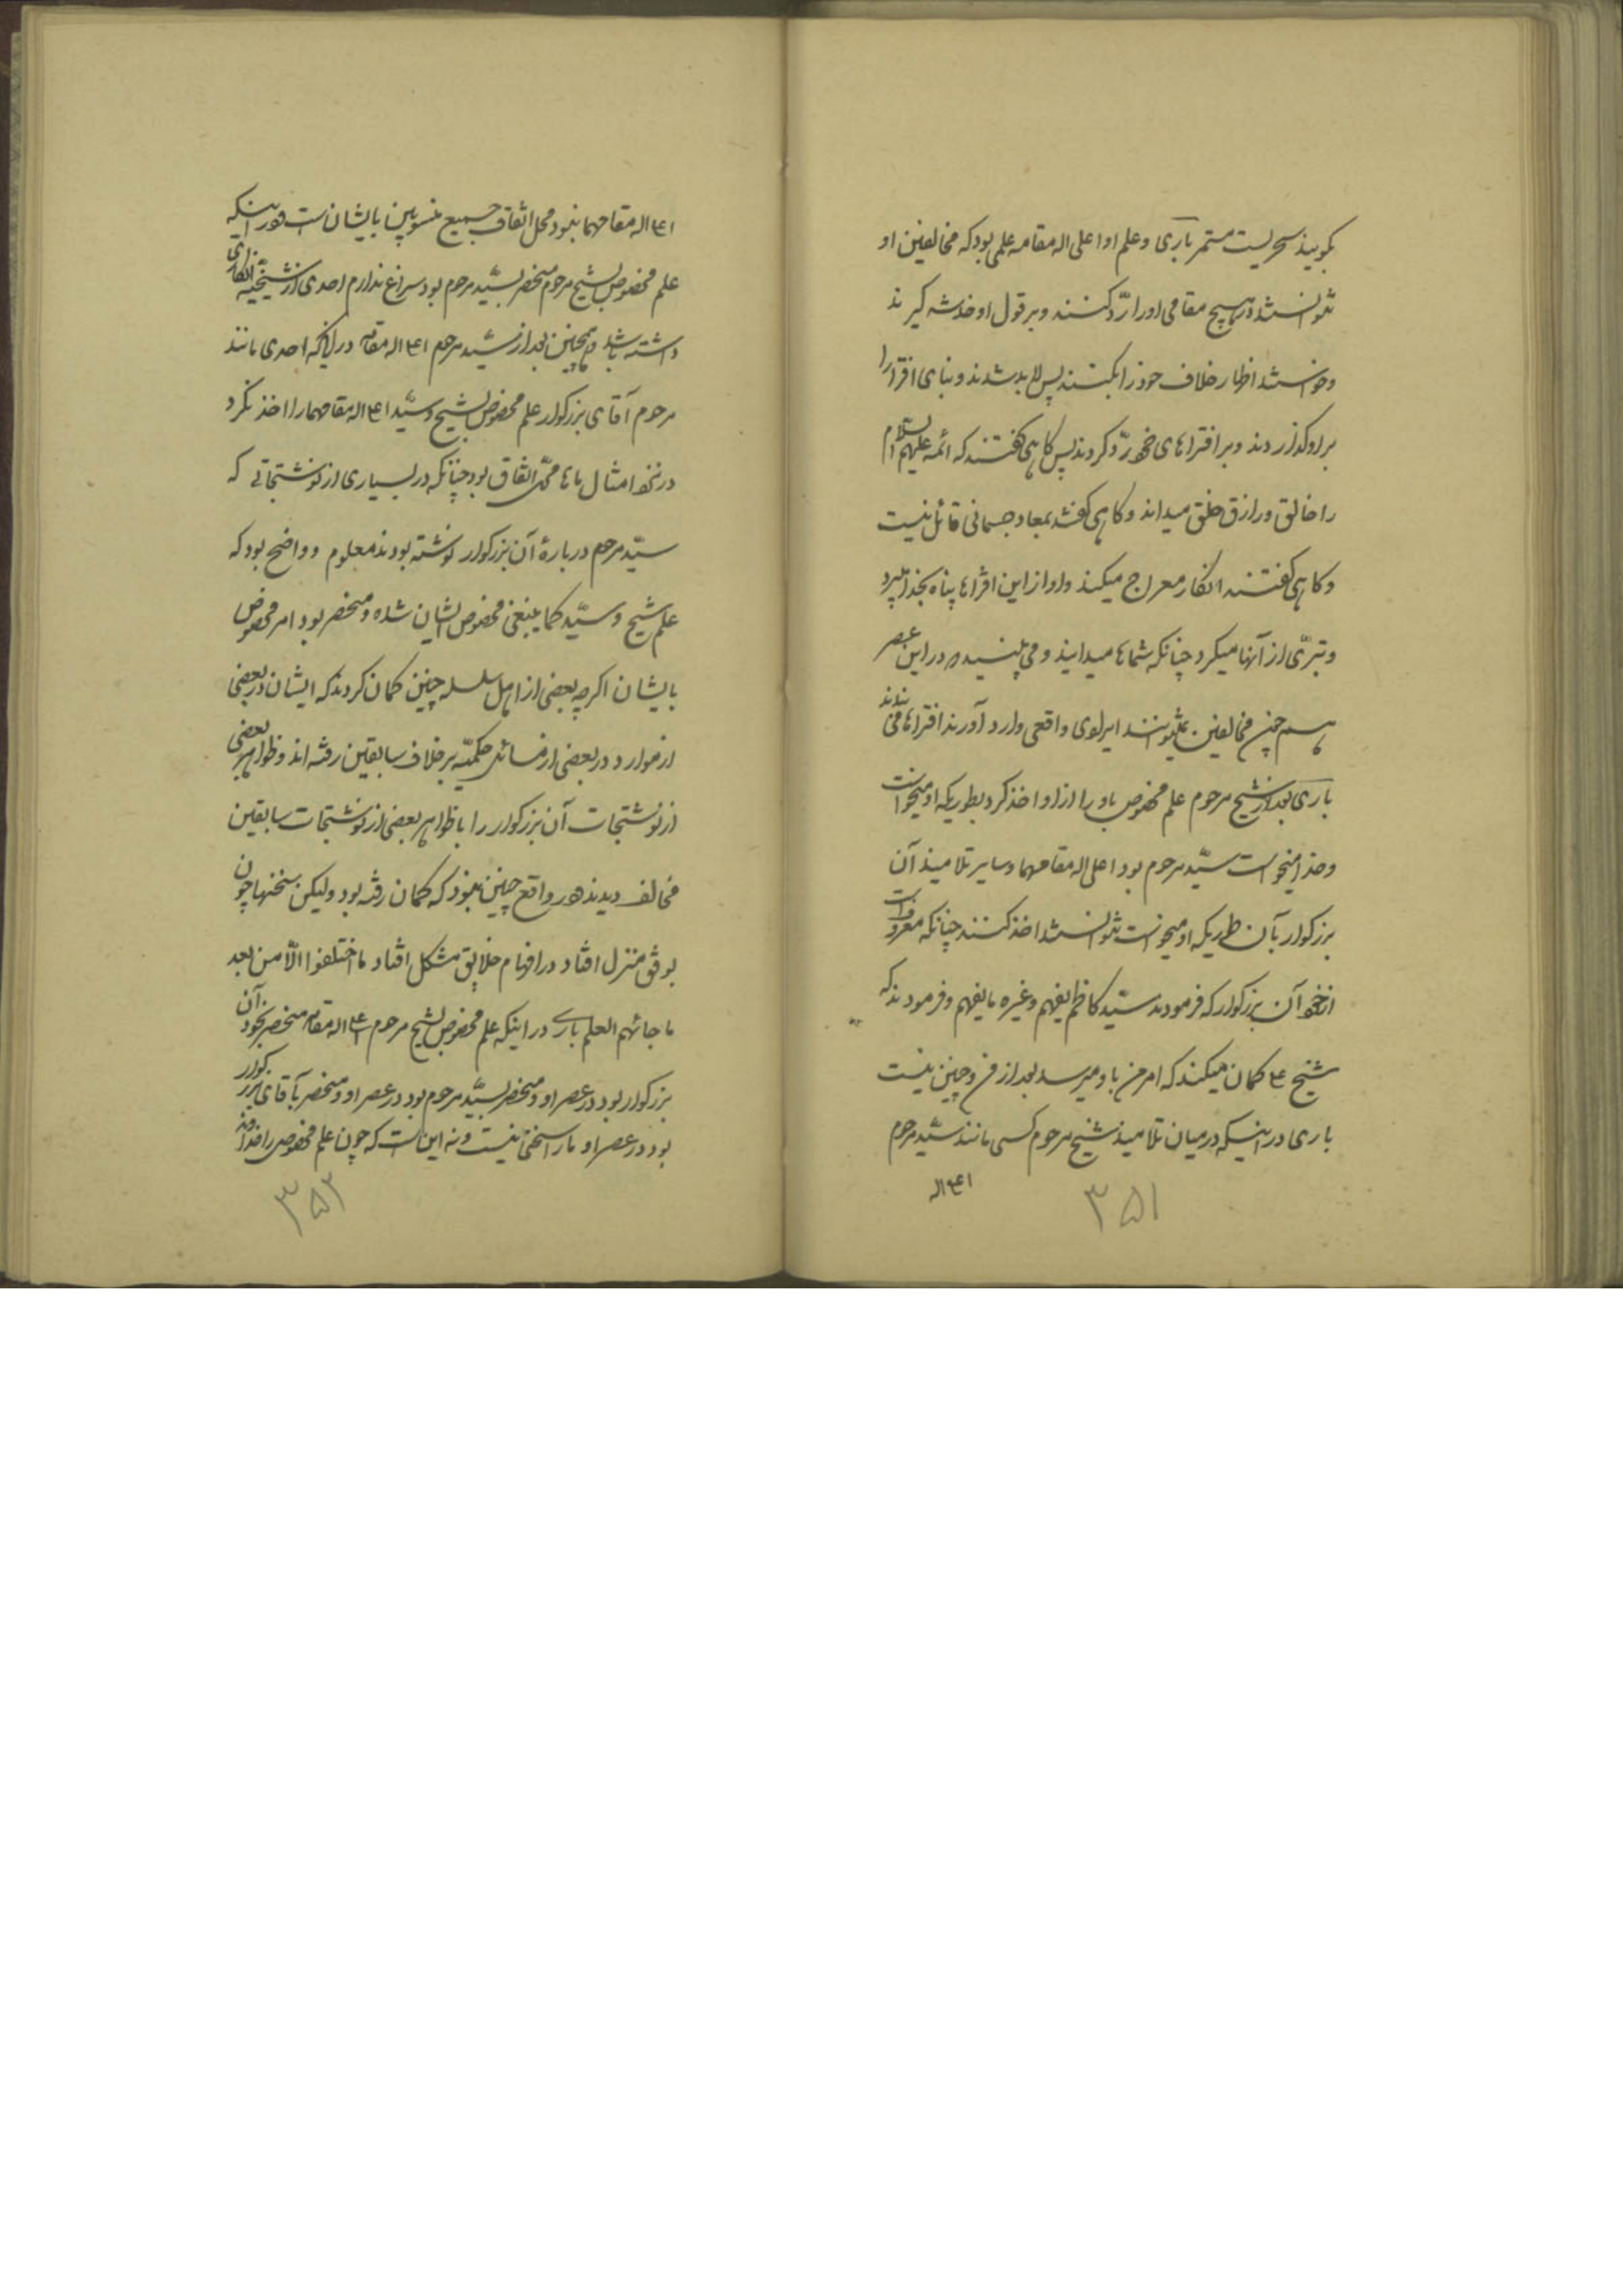 بگویید سحریست مستمر باری و علم او اعلی اله مقامه علمی بود که مخالفین او
نتوانستند در هیچ مقامی او را ردّ کنند و بر قول او خدشه گیرند
و خواستند اظهار خلاف خود را بکنند پس لابد شدند و بنای افترا را
بر او گذاردند و بر افتراهای خود ردّ کردند پس گاهی گفتند که ائمه علیهم السلام
را خالق و رازق خلق میداند و گاهی گفتند بمعاد جسمانی قائل نیست
و گاهی گفتند انکار معراج میکند و او از این افتراها پناه بخدا میبرد
و تبرّی از آنها میکرد چنانکه شماها میدانید و می بینید که در این عصر
هم چنین مخالفین نمیتوانند ایرادی واقعی وارد آورند افتراها می بندند
باری بعد از شیخ مرحوم علم مخصوص باو را از او اخذ کرد بطوریکه او میخواست
و خدا میخواست سیّد مرحوم بود اعلی اله مقامهما و سایر تلامیذ آن
بزرگوار بآن طوریکه او میخواست نتوانستند اخذ کنند چنانکه معروف است
از خود آن بزرگوار که فرمودند سیّد کاظم یفهم و غیره ما یفهم و فرمودند که
شیخ ع گمان میکند که امر من باو میرسد بعد از من و چنین نیست
باری در اینکه در میان تلامیذ شیخ مرحوم کسی مانند سیّد مرحوم
اع اله
۳۵۱
اع اله مقامهما نبود محل اتفاق جمیع منسوبین بایشان است و در اینکه
علم مخصوص بشیخ مرحوم منحصر بسیّد مرحوم بود سراغ ندارم احدی از شیخیّه انکاری
داشته باشد و همچنین بعد از سیّد مرحوم اع اله مقامه در اینکه احدی مانند
مرحوم آقای بزرگوار علم مخصوص بشیخ و سیّد اع اله مقامهما را اخذ نکرد
در نزد امثال ماها محلّ اتفاق بود چنانکه در بسیاری از نوشتجاتی که
سیّد مرحوم دربارهٔ آن بزرگوار نوشته بودند معلوم و واضح بود که
علم شیخ و سیّد کما ینبغی مخصوص ایشان شده و منحصر بود امر مخصوص
بایشان اگرچه بعضی از اهل سلسله چنین گمان کردند که ایشان در بعضی
از موارد و در بعضی از مسائل حکمیّه بر خلاف سابقین رفته اند و ظواهر بعضی
از نوشتجات آن بزرگوار را با ظواهر بعضی از نوشتجات سابقین
مخالف دیدند و در واقع چنین نبود که گمان رفته بود ولیکن سخنها چون
بوفق منزل افتاد در افهام خلایق مشکل افتاد ما اختلفوا الّا من بعد
ما جائهم العلم باری در اینکه علم مخصوص بشیخ مرحوم اع اله مقامه منحصر بخود آن
بزرگوار بود در عصر او و منحصر بسیّد مرحوم بود در عصر او و منحصر بآقای بزرگوار
بود در عصر او ما را سخنی نیست و نه این است که چون علم مخصوص را خداوند
۳۵۲